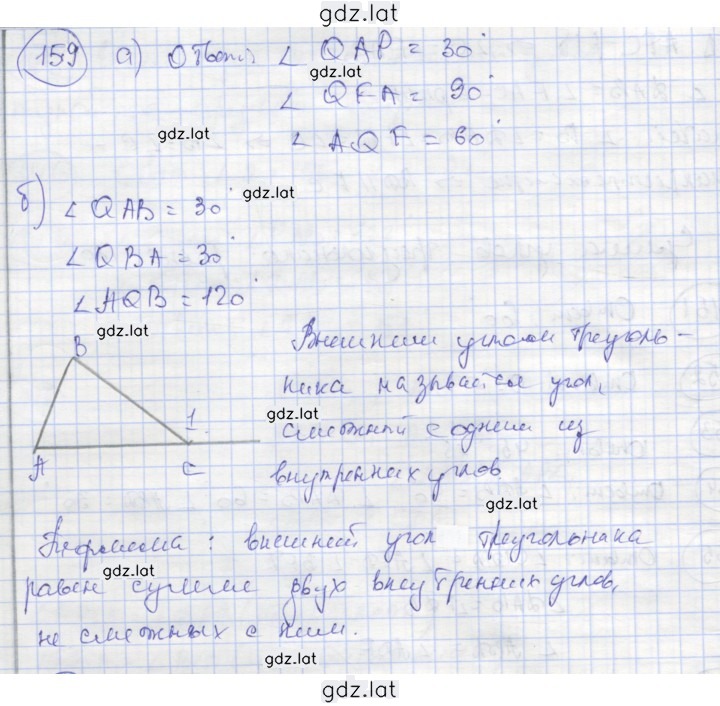 gdz.lat
159 а) Ответ: ∠ QAP = 30°
gdz.lat
∠ QFA = 90°
gdz.lat
∠ AQF = 60°
б) ∠ QAB = 30°
gdz.lat
∠ QBA = 30°
∠ AQB = 120°
gdz.lat
B
1
A
C
Внешним углом треуголь-
ника называется угол,
gdz.lat
смежный с одним из
внутренних углов
gdz.lat
Теорема: внешний угол треугольника
gdz.lat
равен сумме двух внутренних углов,
не смежных с ним.
gdz.lat
gdz.lat